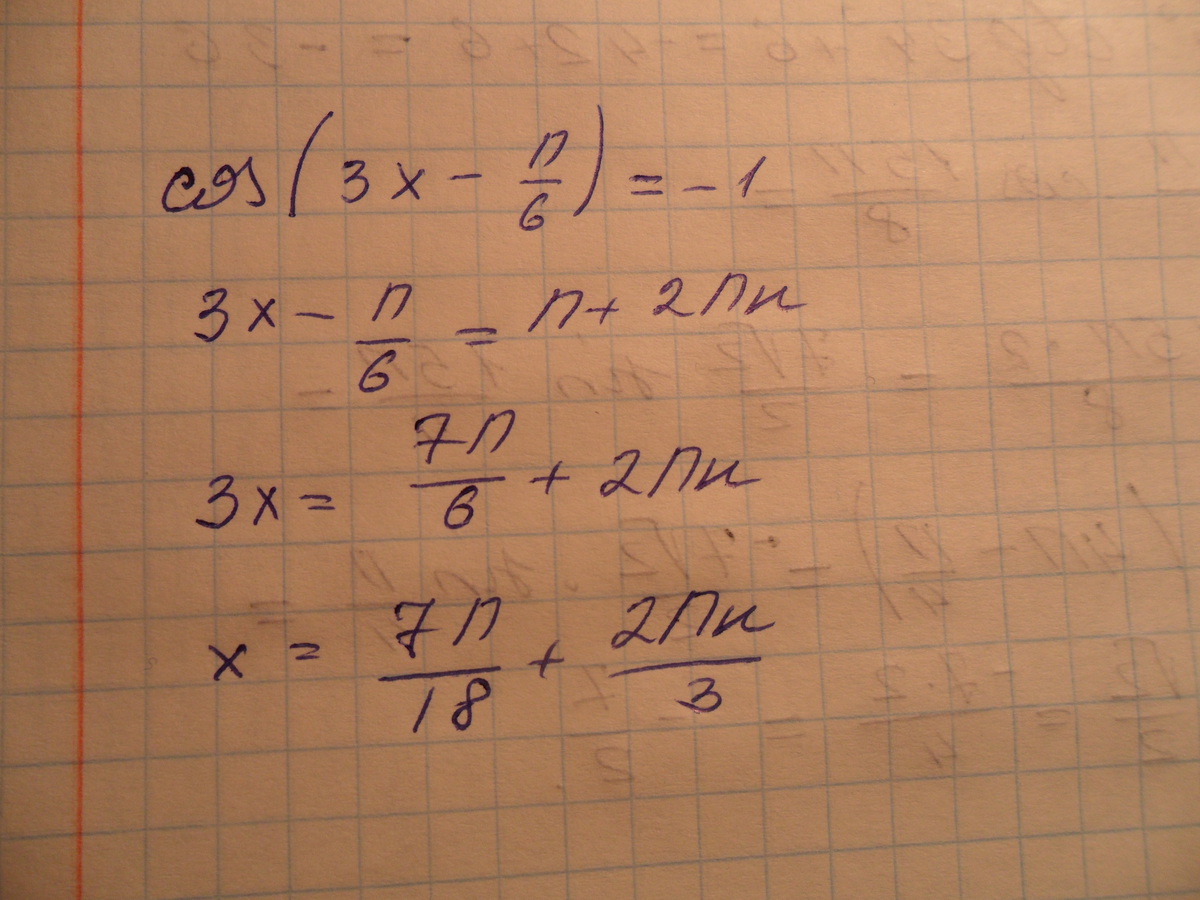 cos(3x - π/6) = -1
3x - π/6 = π + 2πn
3x = 7π/6 + 2πn
x = 7π/18 + 2πn/3